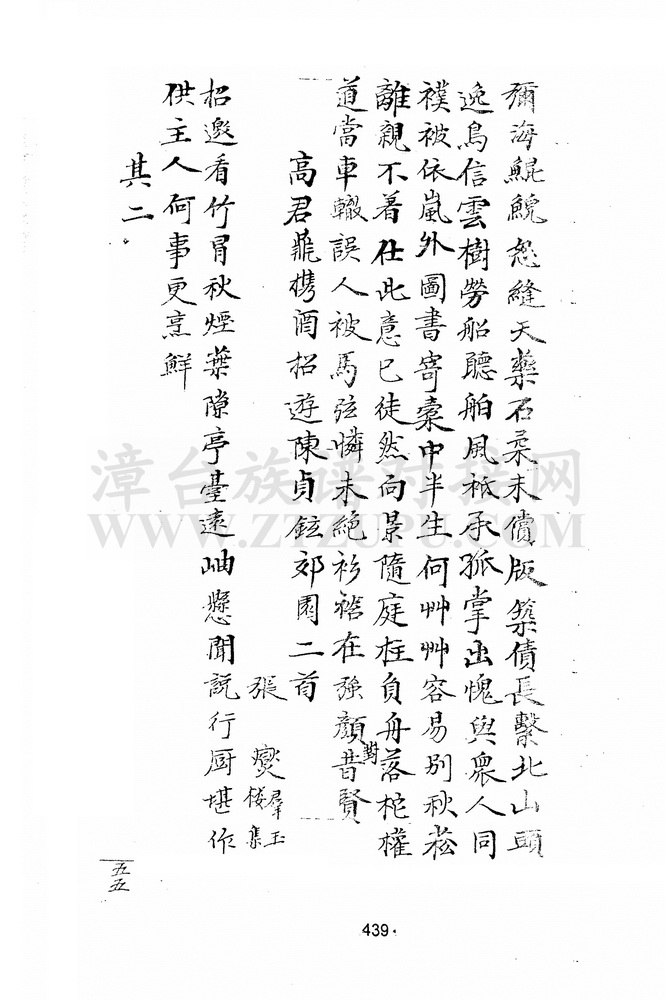 彌海鯤鯢怒縫天藥石柔未償版築債長繫北山頭
逸鳥信雲樹勞船聽舶風秪承孤掌出愧與眾人同
襆被依嵐外圖書寄橐中半生何艸艸容易別秋菘
離親不着仕此意已徒然向景隨庭柱負舟落柁權
道當車轍誤人被馬弦憐未絕衫褡在強顏對昔賢
高君鼎携酒招遊陳貞鉉郊園二首
張燮羣玉樓集
招邀看竹冒秋煙葉隙亭臺遠岫懸聞說行厨堪作
供主人何事更烹鮮
其二。
五五
439.
漳台族谱对接网
WWW.ZTZUPU.COM